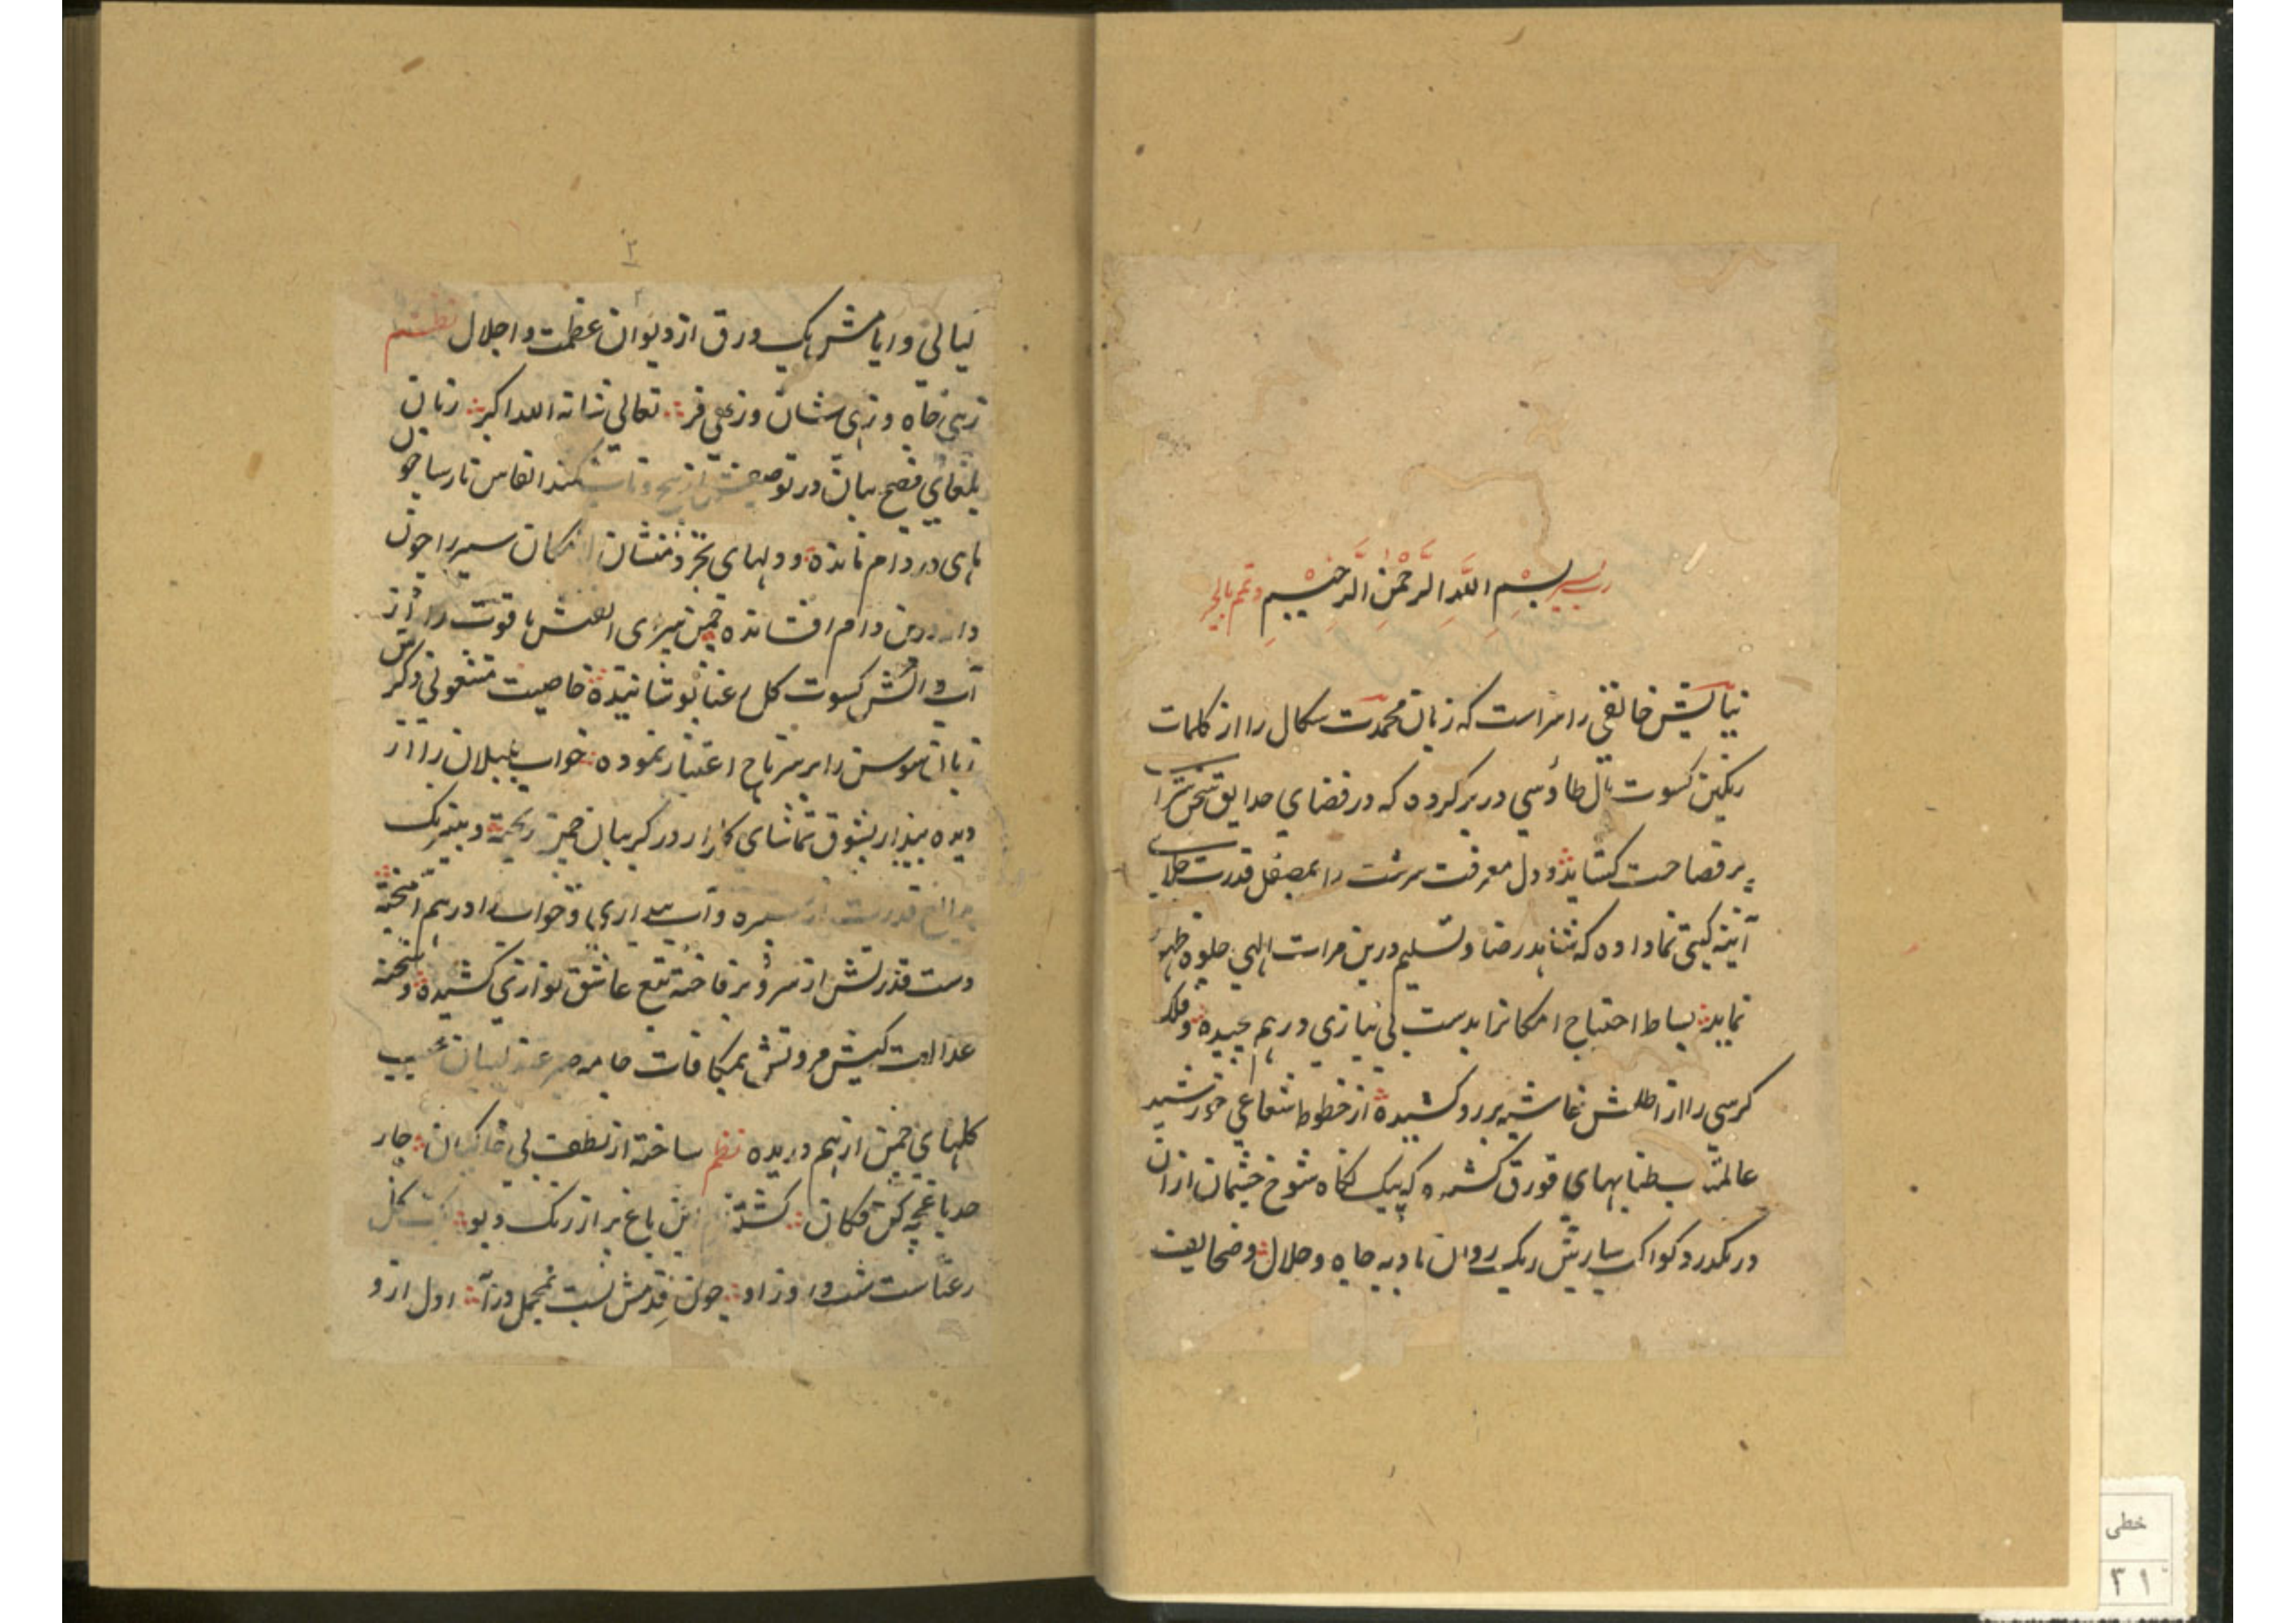 رب یسر بسم الله الرحمن الرحیم وتمم بالخیر
نیایش خالقی را سزاست که زبان محمدت سکال را از کلمات
رنگین کسوت بال طاؤسی در بر کرده که در فضای حدایق سخن سرا
پر فصاحت کشاید و دل معرفت سرشت را بمصقل قدرت جلای
آینه کیتی نما داده که شاهد رضا و تسلیم درین مرات الهی جلوه ظهور
نماید بساط احتیاج امکانرا بدست بی نیازی در هم چیده و فلک
کرسی را از اطلسش غاشیه بر رو کشیده از خطوط شعاعی خورشید
عالمتاب طنابهای قورق کشیده که پیک نگاه شوخ چشمان از ان
در نگذرد کواکب سیارش ریک روان بادیه جاه و جلال و صحایف
۲
لیالی و ایامش یک ورق از دیوان عظمت و اجلال نظم
زهی جاه و زهی شان و زهی فر تعالی شانه الله اکبر زبان
بلغای فصیح بیان در توصیفش کمند انفاس نارسا چون
ماهی در دام مانده و دلهای تجرد منشان امکان سیر را چون
دانه درین دام افشانده چمن پیرای لطفش یاقوت را از
آب و آتش کسوت کل رعنا پوشانیده خاصیت مشغولی ذکرش
زبان سوسن را بر سر تاج اعتبار نموده خواب بلبلان را از
دیده بیدار بشوق تماشای کلزار در کریبان چمن ریخته و بنیرنک
قدرت از سبزه و آب بیداری و خواب را در هم آمیخته
دست قدرتش از سرو بر فاخته تیغ عاشق نوازی کشیده و شحنه
عدالت کیش مروتش بمکافات جامه صبر عندلیبان
کلهای چمن از هم دریده نظم ساخته از لطف بی خاکیان چار
حد باغچه کن فکان کشته این باغ پر از رنک و بو کل
رعناست شب و روز او چون قدمش نیست تحمل درآ اول ازو
خطی
۳۱